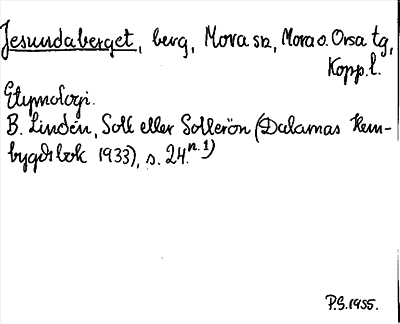 Jesundaberget, berg, Mora sn, Mora o. Orsa tg,
Kopp. l.
Etymologi.
B. Lindén, Soll eller Sollerön (Dalarnas Hem-
bygdsbok 1933), s. 24.n.1)
P.S. 1955.